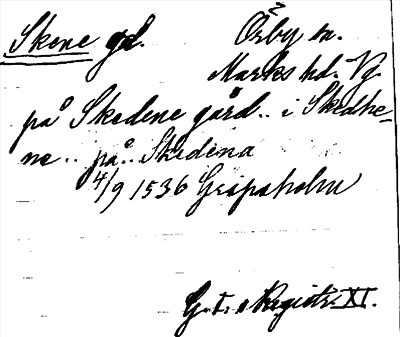 Skene gd. Örby sn.
Marks hd. Vg.
på Skedene gård .. i Skedhe-
ne .. på .. Skedena
4/9 1536 Gräpaholm
G. I:s Registr. XI.